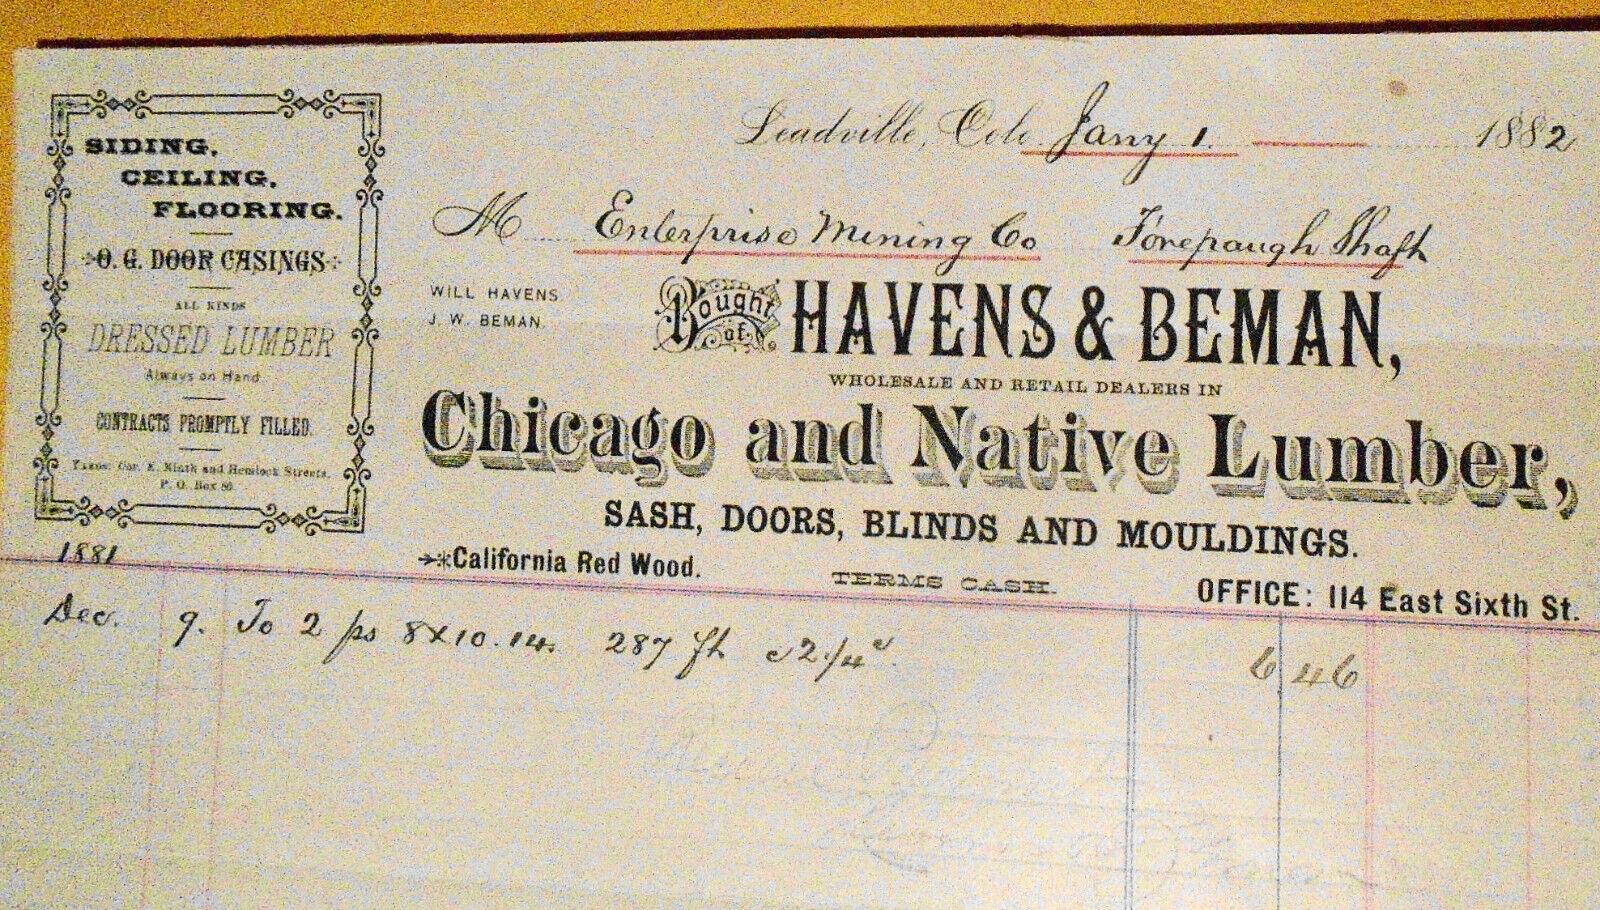 SIDING,
CEILING,
FLOORING.
O. G. DOOR CASINGS
ALL KINDS
DRESSED LUMBER
Always on Hand
CONTRACTS PROMPTLY FILLED.
Yards: Cor. E. Ninth and Hemlock Streets.
P. O. Box 86
Leadville, Colo. Jany 1. 1882
M Enterprise Mining Co Forepaugh Shaft
WILL HAVENS.
J. W. BEMAN.
Bought of HAVENS & BEMAN,
WHOLESALE AND RETAIL DEALERS IN
Chicago and Native Lumber,
SASH, DOORS, BLINDS AND MOULDINGS.
California Red Wood.
TERMS CASH.
OFFICE: 114 East Sixth St.
1881
Dec. 9. To 2 ps 8x10.14. 287 ft 6 46